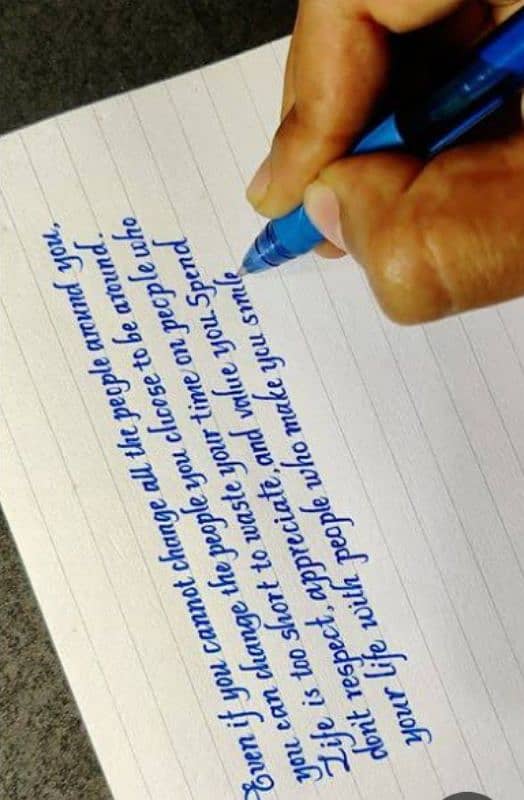 Even if you cannot change all the people around you,
you can change the people you choose to be around.
Life is too short to waste your time on people who
dont respect, appreciate, and value you. Spend
your life with people who make you smile